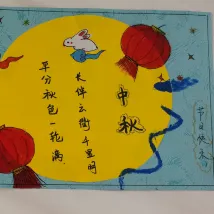 平分秋色一轮满
长伴云衢千里明
中秋
节日快乐